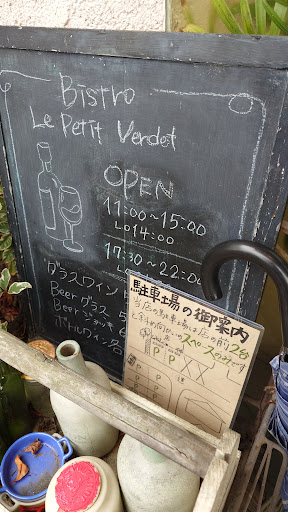 Bistro
Le Petit Verdot
OPEN
11:00~15:00
LO 14:00
17:30~22:00
グラスワイン
Beer グラス
Beer ジョッキ
ボトルワイン 各
駐車場の御案内
当店の駐車場は店の前2台
スペースのみです
P P